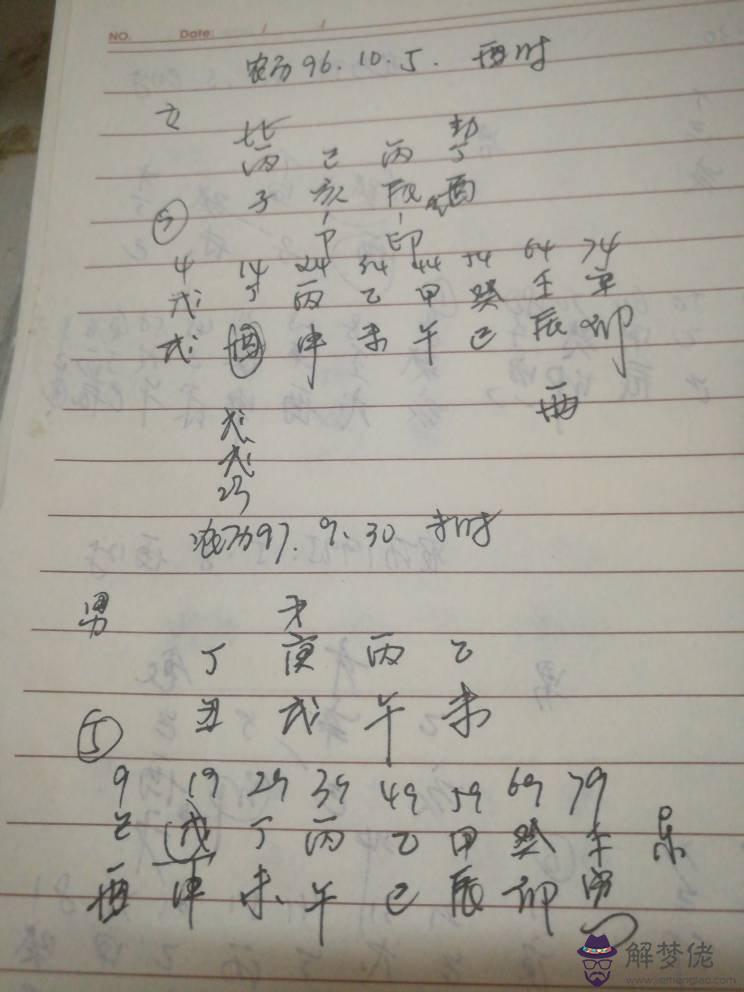 NO. Date: / /
农历96.10.5. 酉时
女
比 劫
丙 己 丙 丁
子 亥 辰 酉
印 印
4 14 24 34 44 54 64 74
戊 丁 丙 乙 甲 癸 壬 辛
戌 酉 申 未 午 巳 辰 卯
酉
戊
戌
农历97.9.30 未时
男
才
丁 庚 丙 乙
丑 戌 午 未
5
9 19 29 39 49 59 69 79
己 戊 丁 丙 乙 甲 癸 壬
酉 申 未 午 巳 辰 卯 寅
解梦佬
www.jiemenglao.com